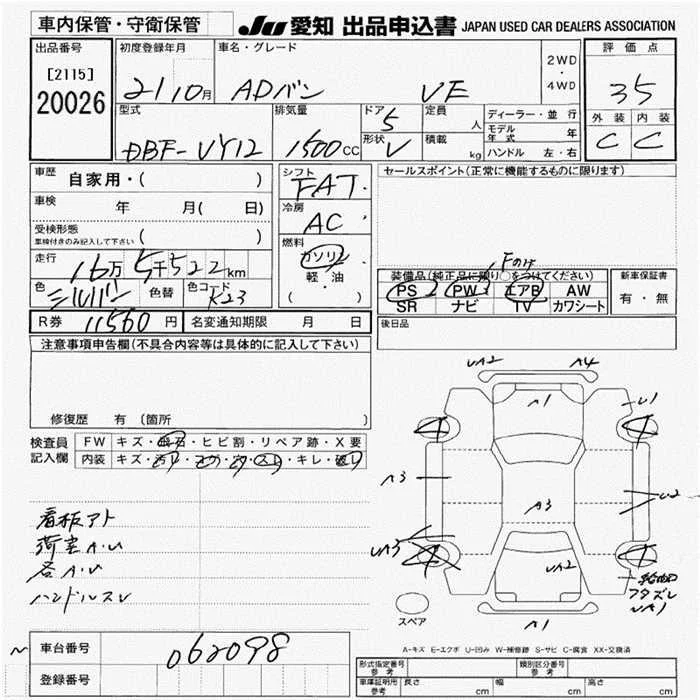 車内保管・守衛保管
JU 愛知 出品申込書 JAPAN USED CAR DEALERS ASSOCIATION
出品番号 初度登録年月 車名・グレード 2WD・4WD 評価点
[2115]
20026
21 10月 ADバン VE 35
外装 内装
C C
型式 排気量 ドア 5 定員 人 ディーラー・並行
DBF-VY12 1500cc 形状 V 積載 kg モデル年式 年
ハンドル 左・右
車歴 自家用・( )
シフト FAT
セールスポイント(正常に機能するものに限ります)
車検 年 月( 日)
冷房 AC
受検形態 車検付きのみ記入して下さい ( )
燃料 ガソリン 軽・油 ( )
走行 16万5千522km
装備品(純正品に限り○をつけてください) 新車保証書
色 シルバー 色替 色コード K23
PS PW エアB AW 有・無
SR ナビ TV カワシート
R券 11560円 名変通知期限 月 日
後日品
注意事項申告欄(不具合内容等は具体的に記入して下さい)
修復歴 有 (箇所 )
検査員記入欄 FW キズ・飛石・ヒビ割・リペア跡・X要
内装 キズ・汚れ・コゲ・穴・スレ・キレ・破れ
UA2 A4
A1 U1
A3 A3 U2
UA3 UA2
UA1
A1
看板アト
荷室A.U
各A.U
ハンドルスレ
スペア
A-キズ E-エクボ U-凹み W-補修跡 S-サビ C-腐食 XX-交換済
車台番号 062098
登録番号
形式指定番号 参考 類別区分番号 参考
車庫証明用 参考 長さ cm 幅 cm 高さ cm